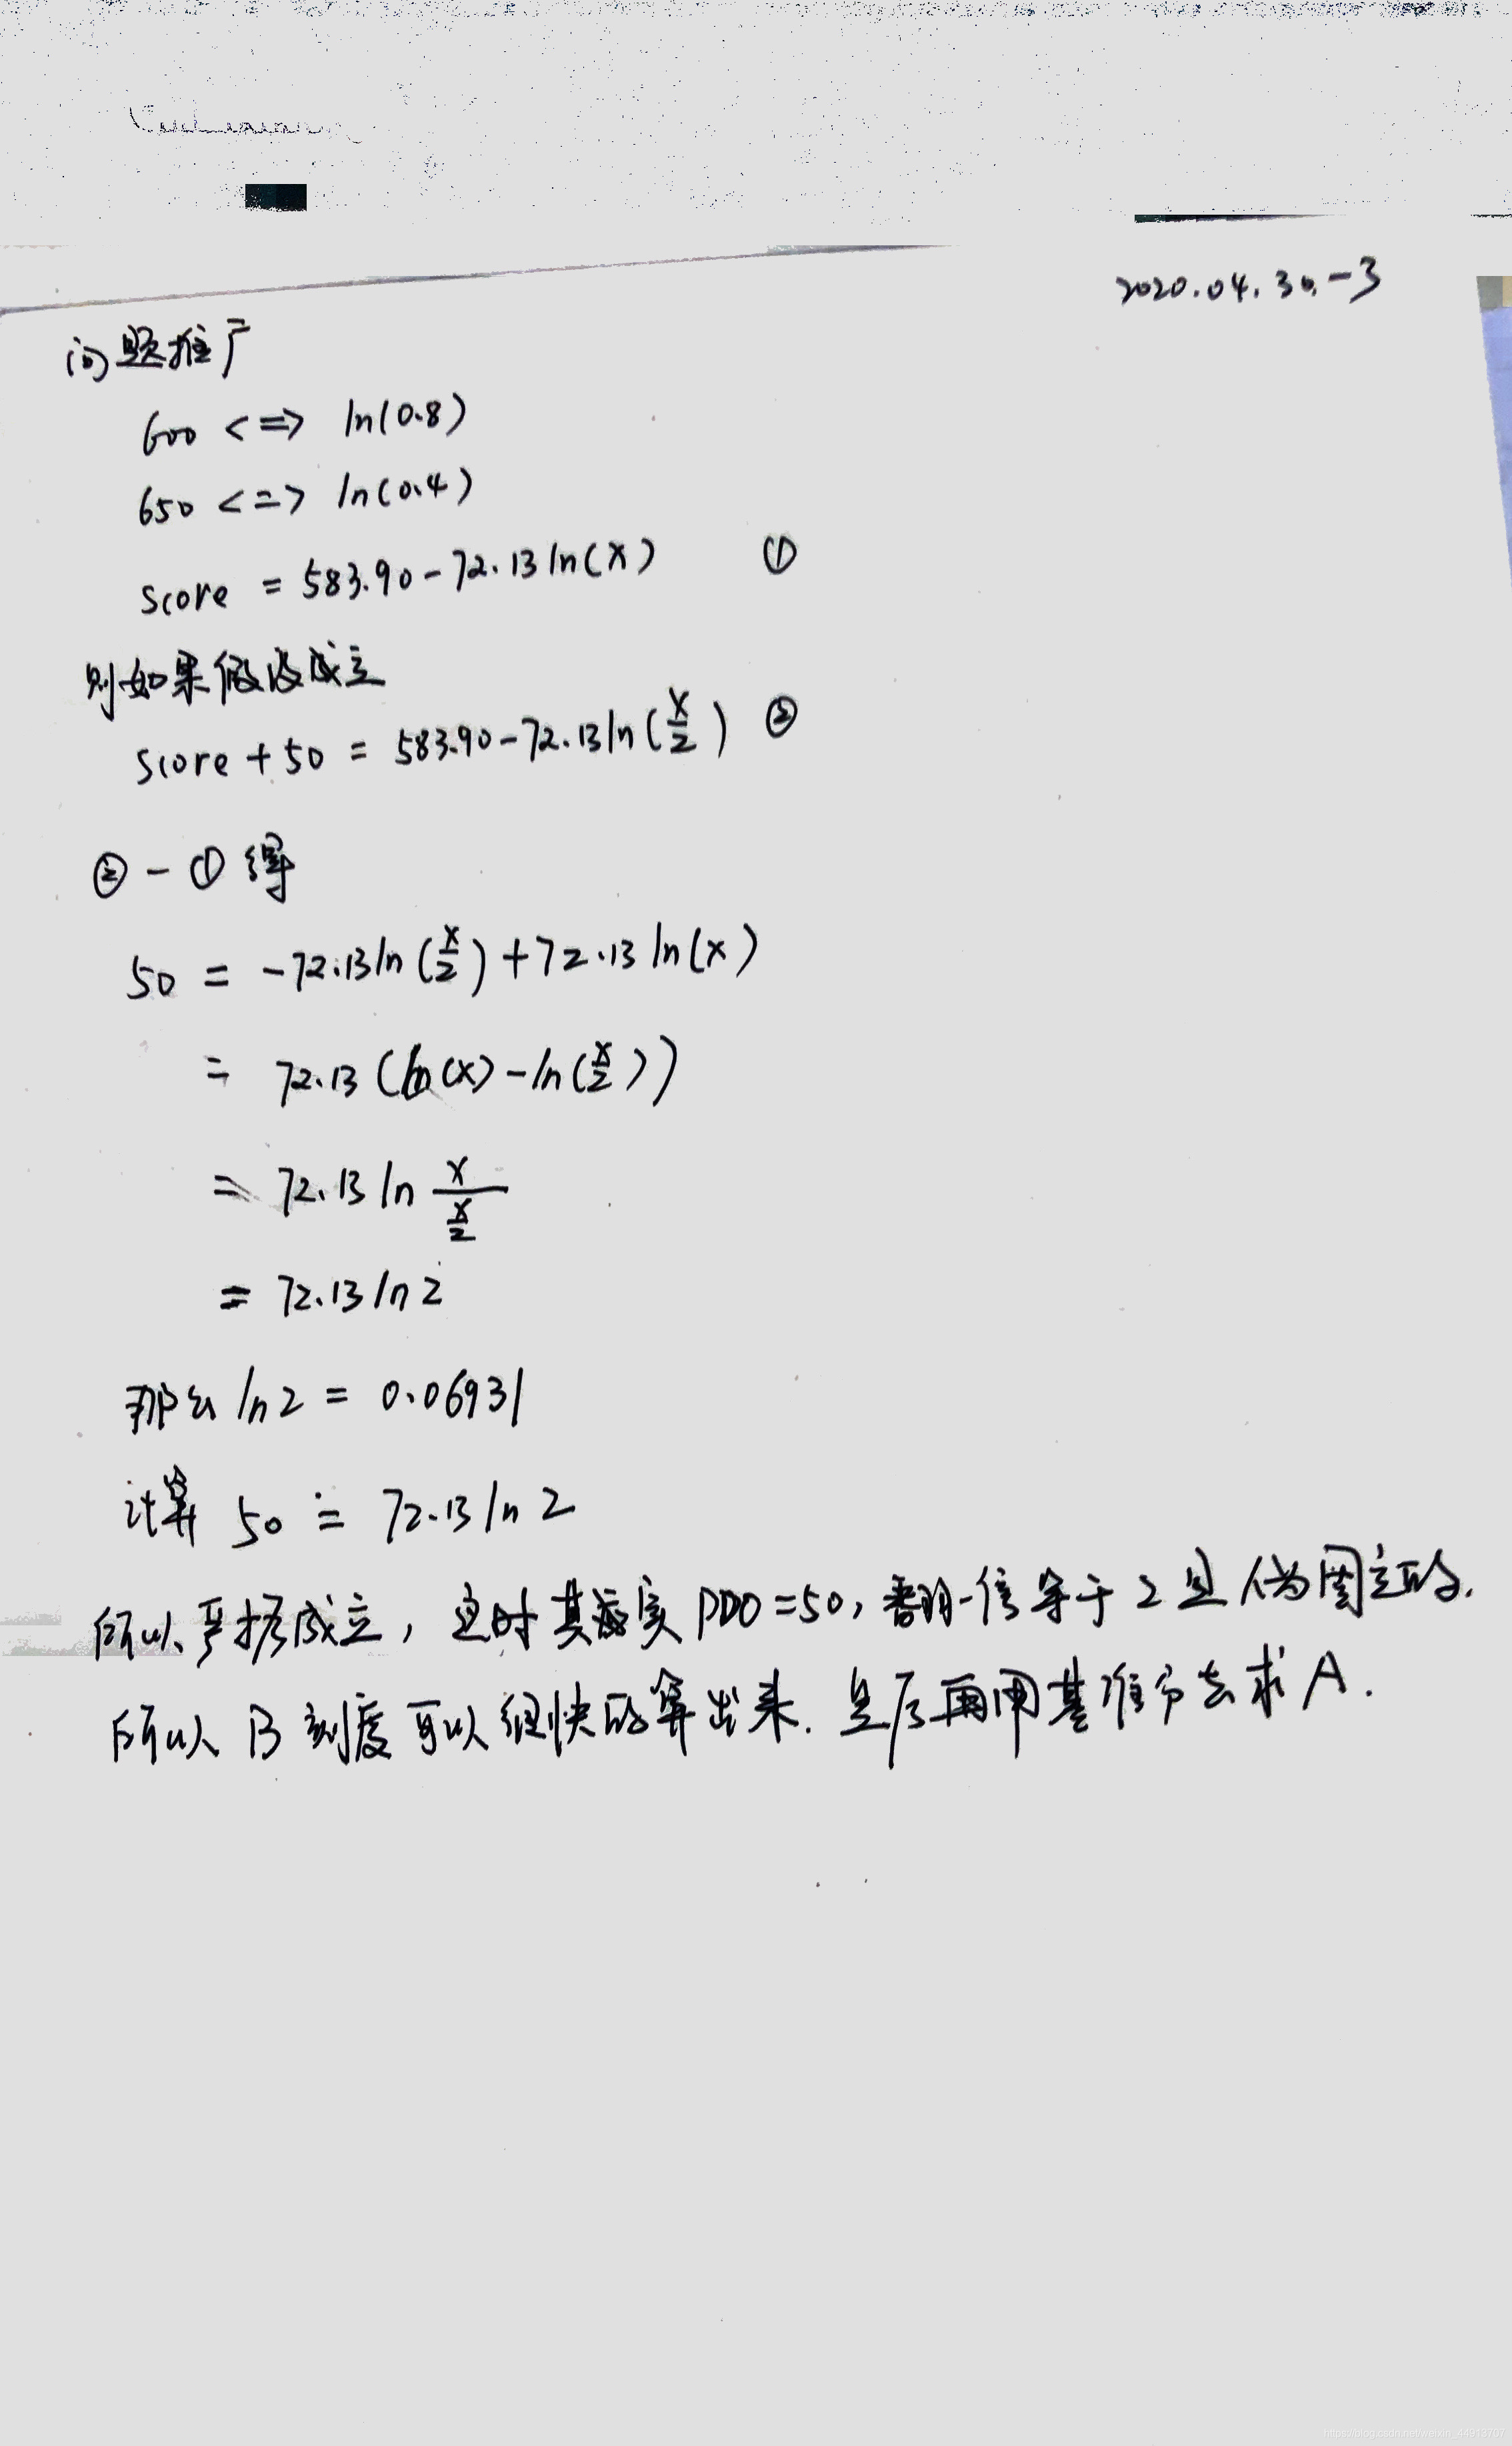 2020.04.30.-3
问题推广
600 <=> ln(0.8)
650 <=> ln(0.4)
score = 583.90-72.13ln(x) ①
则如果假设成立
score+50 = 583.90-72.13ln(x/2) ②
②-①得
50 = -72.13ln(x/2)+72.13ln(x)
= 72.13(ln(x)-ln(x/2))
= 72.13 ln x/(x/2)
= 72.13 ln2
那么 ln2 = 0.06931
计算 50 ≐ 72.13 ln 2
所以严格成立, 这时其实 PDO=50, 翻一倍等于2且为固定的.
所以 B 刻度可以很快的算出来. 最后再用基准分去求A.
https://blog.csdn.net/weixin_44918707